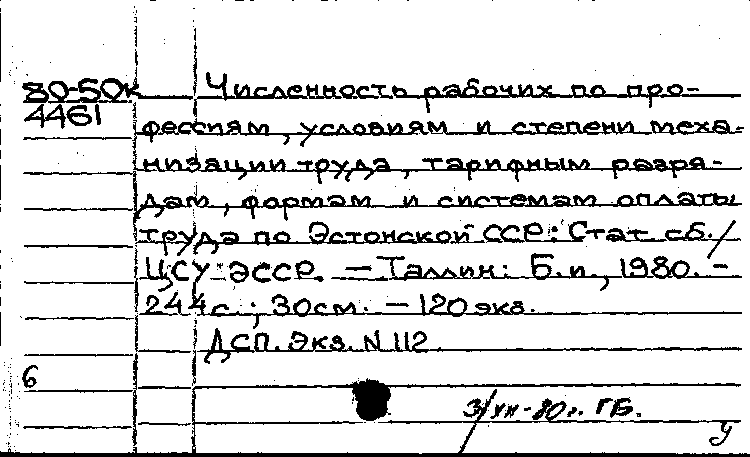 80-50к Численность рабочих по про-
4461 фессиям, условиям и степени меха-
низации труда, тарифным разря-
дам, формам и системам оплаты
труда по Эстонской ССР: Стат. сб./
ЦСУ ЭССР. — Таллин: Б.и., 1980. -
244 с.; 30см. — 120 экз.
ДСП. Экз. N 112
6
-80г. ГБ.